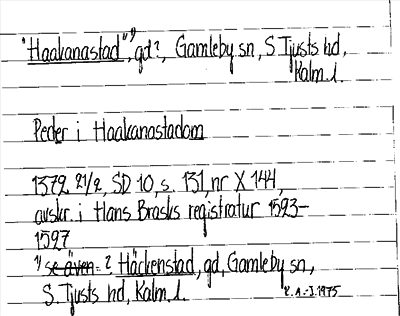 "Haakanastad"¹⁾, gd?, Gamleby sn, S Tjusts hd,
Kalm. l.
Peder i Haakanastadom
1379 21/2, SD 10, s. 131, nr X 144,
avskr. i Hans Brasks registratur 1593-
1597
¹⁾ se även = ? Häckenstad, gd, Gamleby sn,
S. Tjusts hd, Kalm. l.
R.A.-J. 1975